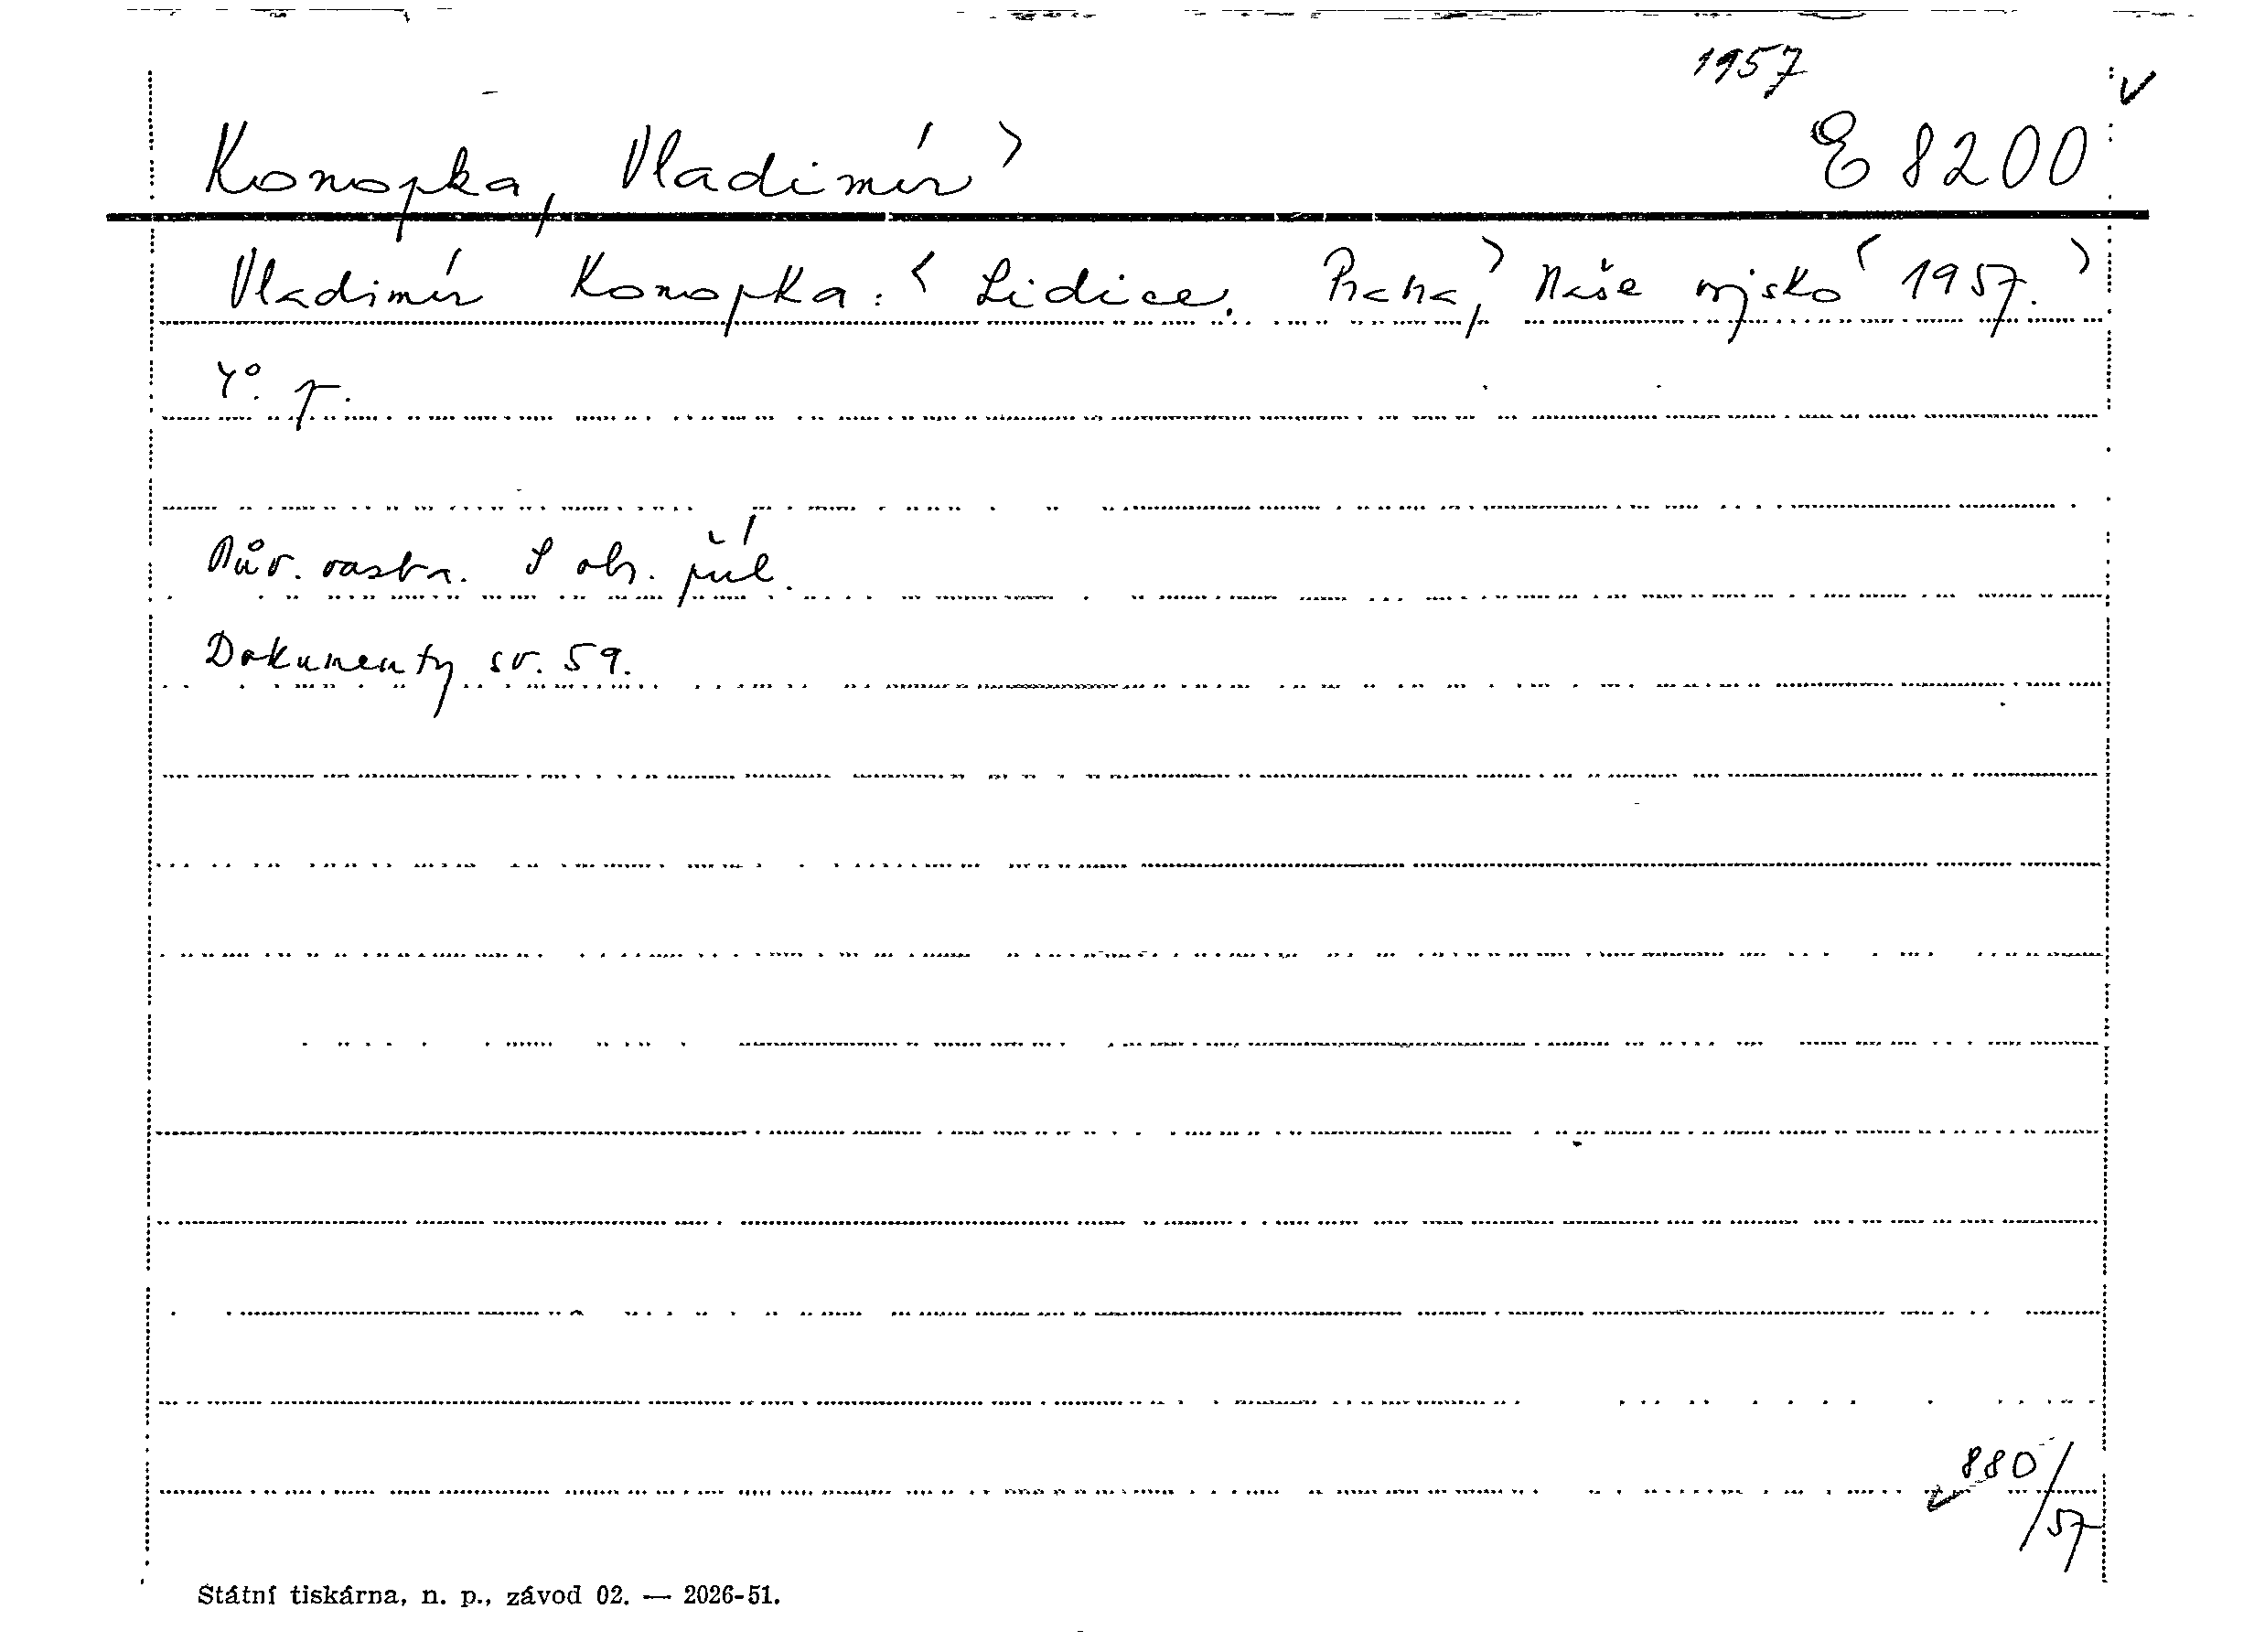 1957
Konopka, Vladimír
E 8200
Vladimír Konopka: Lidice. Praha, Naše vojsko 1957.
4°. p.
Pův. vazba. S obr. příl.
Dokumenty sv. 59.
880/57
Státní tiskárna, n. p., závod 02. — 2026-51.